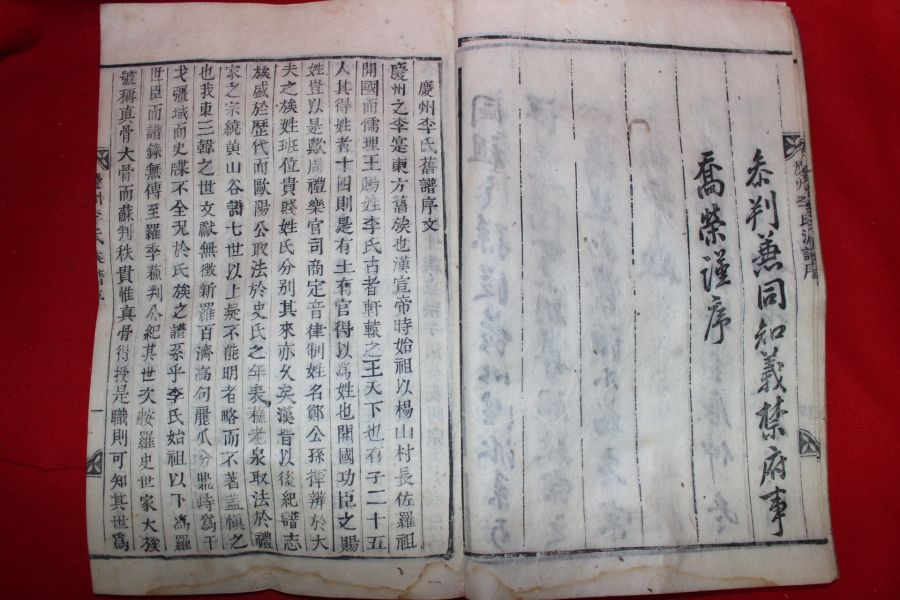 慶州李氏派譜序
叅判兼同知義禁府事
喬榮謹序
慶州李氏舊譜序文
慶州之李寔東方舊族也漢宣帝時始祖以楊山村長佐羅祖
開國而儒理王賜姓李氏古者軒轅之王天下也有子二十五
人其得姓者十四則是有土有官得以爲姓也開國功臣之賜
姓豈以是歟周禮樂官司商定音律制姓名鄭公孫揮辨於大
夫之族姓班位貴賤姓氏分別其來亦久矣漢晉以後紀譜志
族盛於歷代而歐陽公取法於史氏之年表蘓老泉取法於禮
家之宗統黄山谷譜七世以上疑不能明者略而不著盖愼之
也我東三韓之世文獻無徵新羅百濟高句麗瓜分鼎峙爲干
戈疆域而史牒不全況於氏族之譜系乎李氏始祖以下爲羅
世臣而譜錄無傳至羅季蘓判公紀其世次按羅史世家大族
號稱真骨大骨而蘇判秩貴惟真骨得授是職則可知其世爲
慶州李氏族譜序 一